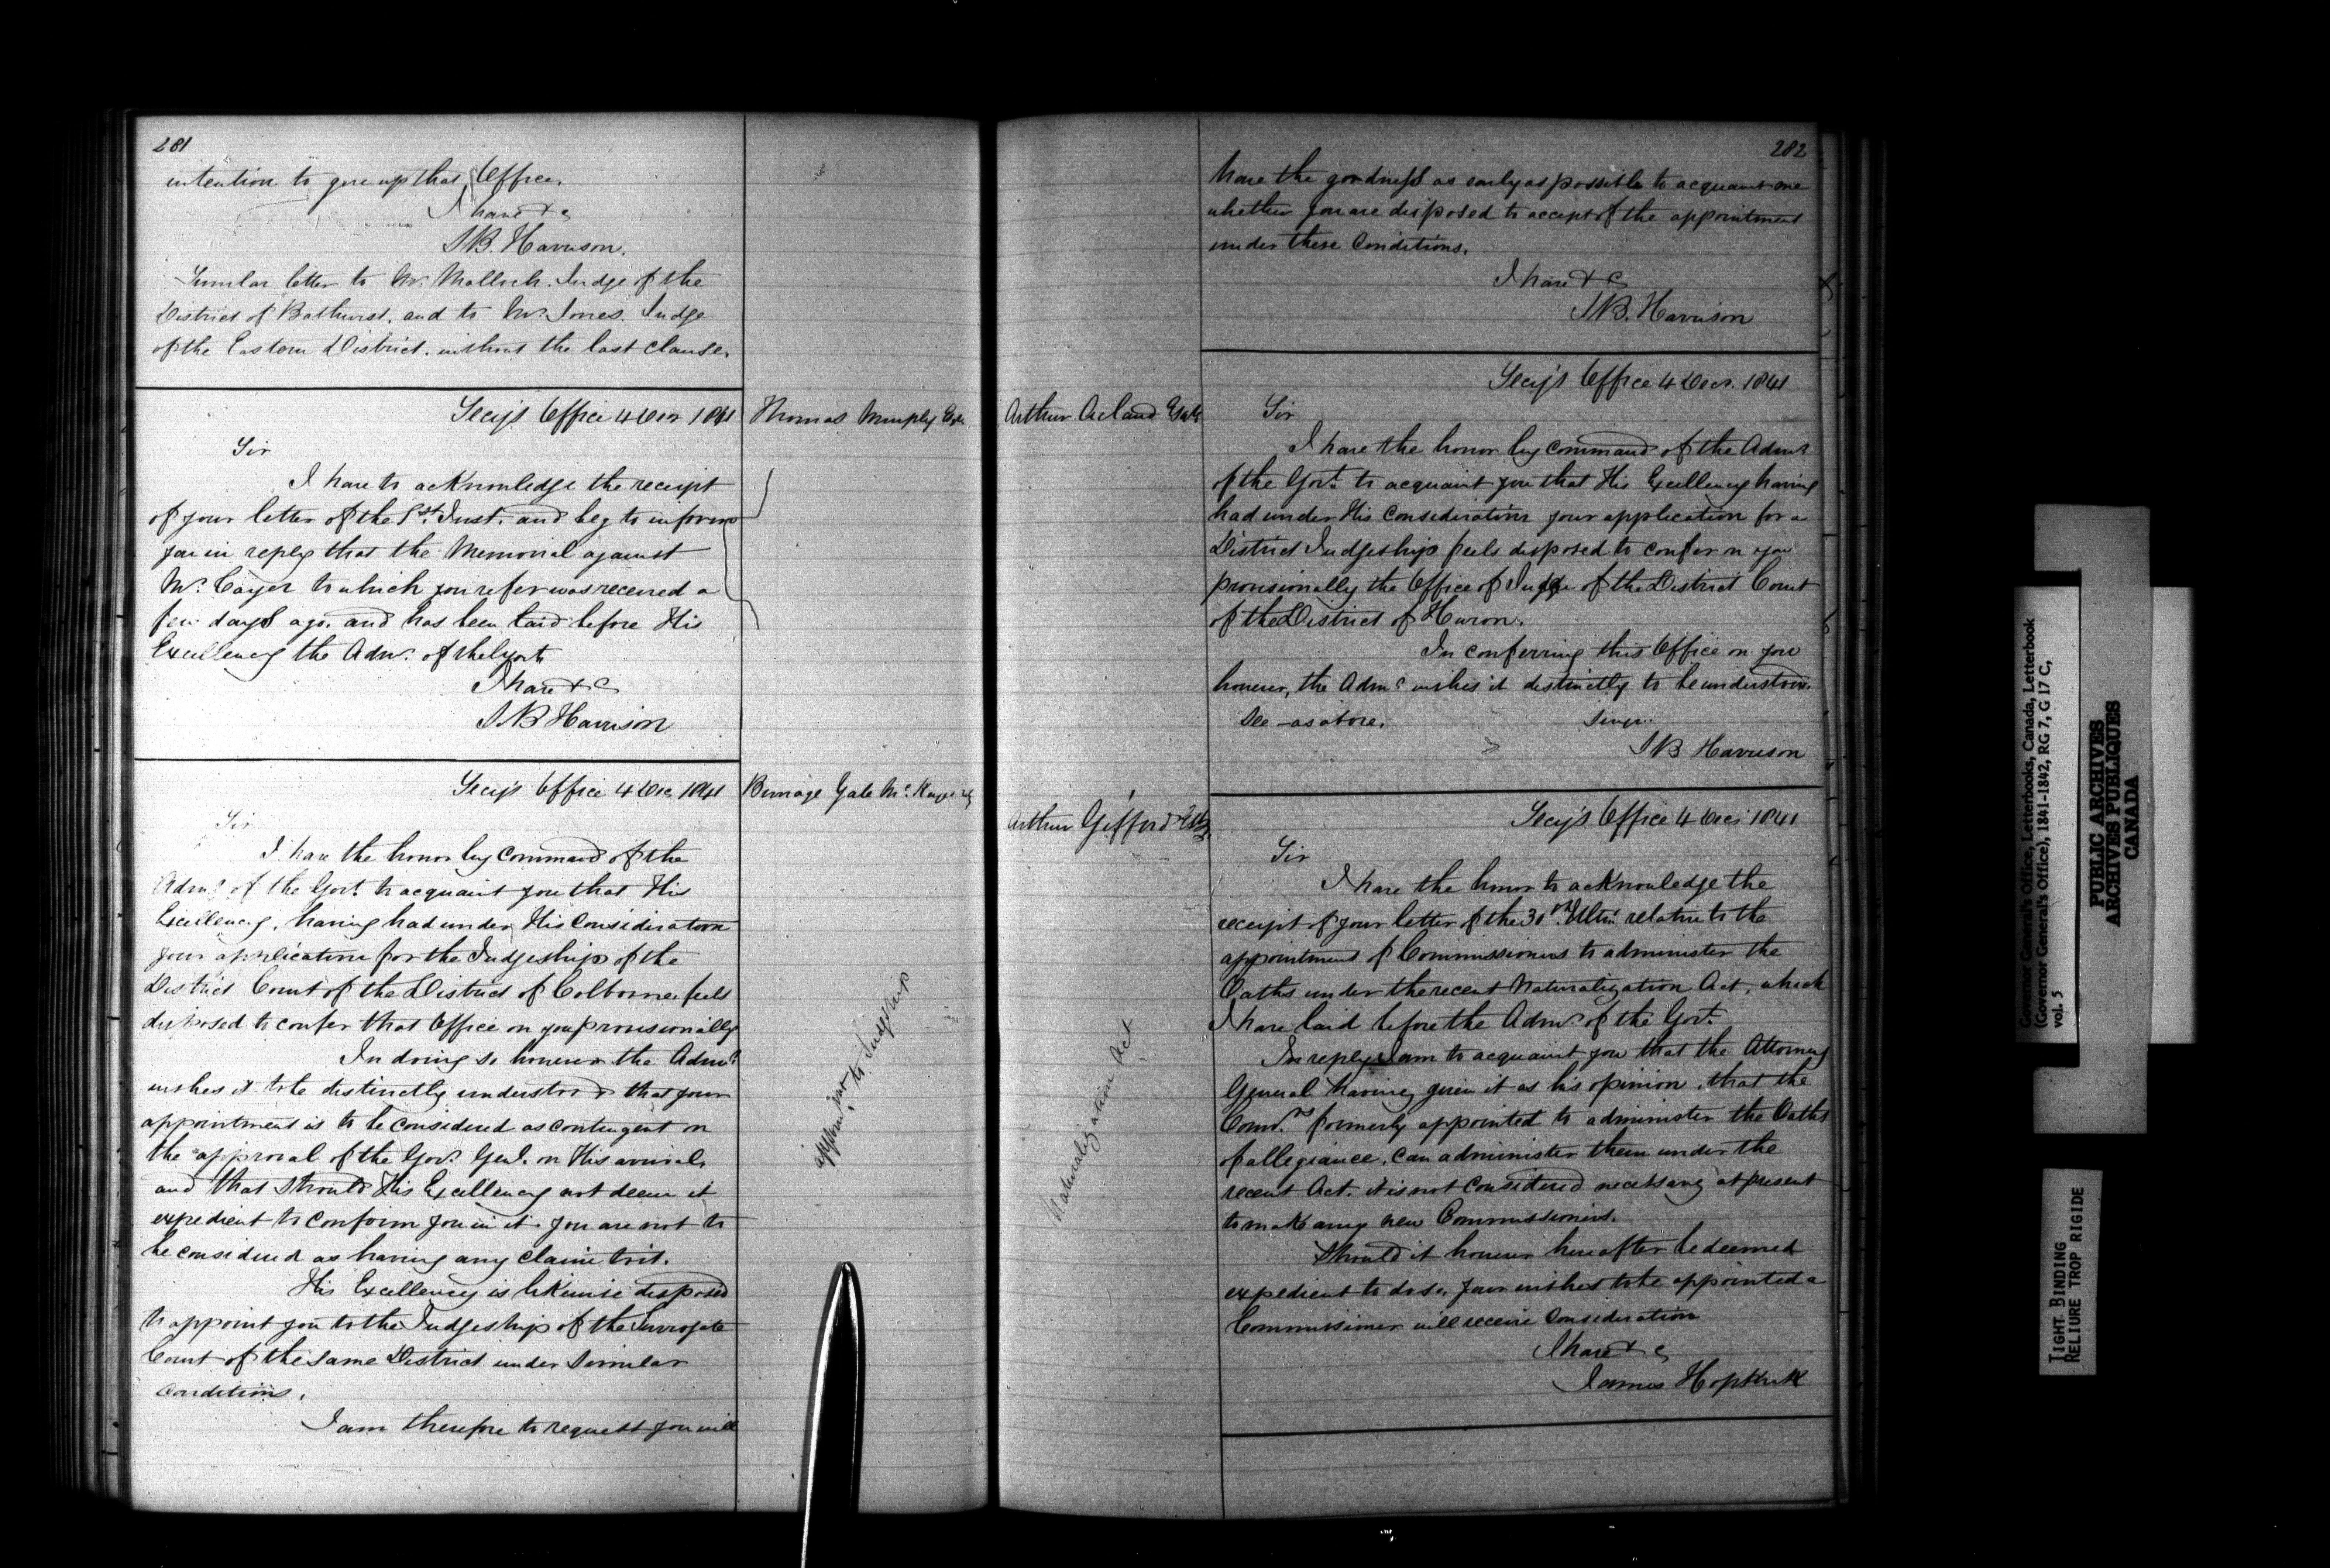 281
intention to give up that Office.
I have &c
S.B. Harrison.
Similar letter to Mr. Malloch. Judge of the
District of Bathurst. and to Mr. Jones. Judge
of the Eastern District. without the last clause.
Secy's Office 4 Decr 1841
Thomas Murphy Esqr
Sir
I have to acknowledge the receipt
of your letter of the 1st. Inst. and beg to inform
you in reply that the Memorial against
Mr. to which you refer was received a
few days ago. and has been laid before His
Excellency the Admr. of the Govt.
I have &c
S.B Harrison
Secy's Office 4 Dec 1841
Burrage Yale Mc.
Sir
I have the honor by Command of the
Admr. of the Govt. to acquaint you that His
Excellency, having had under His Consideration
your application for the Judgeship of the
District Court of the District of Colborne, feels
disposed to confer that Office on you provisionally
In doing so however the Admr.
wishes it to be distinctly understood that your
appointment is to be considered as contingent on
the approval of the Govr. Genl. on His arrival,
and that should His Excellency not deem it
expedient to confirm you in it. you are not to
be considered as having any claim to it.
His Excellency is likewise disposed
to appoint you to the Judgeship of the Surrogate
Court of the same District under similar
conditions.
I am therefore to request you will
appointment to Judgeship
282
have the goodness as early as possible to acquaint me
whether you are disposed to accept of the appointment
under these Conditions.
I have &c
S.B. Harrison
Secy's Office 4 Decr. 1841
Arthur Acland Esqre
Sir
I have the honor by Command of the Admr
of the Govt. to acquaint you that His Excellency having
had under His Consideration your application for a
District Judgeship feels disposed to confer on you
provisionally the Office of Judge of the District Court
of the District of Huron.
In conferring this Office on you
however, the Admr wishes it distinctly to be understood.
See as above.
S B Harrison
Secy's Office 4 Decr 1841
Arthur Gifford Esqr.
Sir
I have the honor to acknowledge the
receipt of your letter of the 30th. Ulto. relative to the
appointment of Commissioners to administer the
Oaths under the recent Naturalization Act, which
I have laid before the Admr of the Govt.
In reply I am to acquaint you that the Attorney
General having given it as his opinion, that the
Comrs. formerly appointed to administer the Oaths
of allegiance, can administer them under the
recent Act. it is not considered necessary at present
to make any new Commissioners.
Should it however hereafter be deemed
expedient to do so, your wishes to be appointed a
Commissioner will receive consideration
I have &c
James Hopkirk
Naturalization Act
Governor General's Office, Letterbooks, Canada, Letterbook
(Governor General's Office), 1841-1842, RG 7, G 17 C,
vol. 5
PUBLIC ARCHIVES
ARCHIVES PUBLIQUES
CANADA
TIGHT BINDING
RELIURE TROP RIGIDE